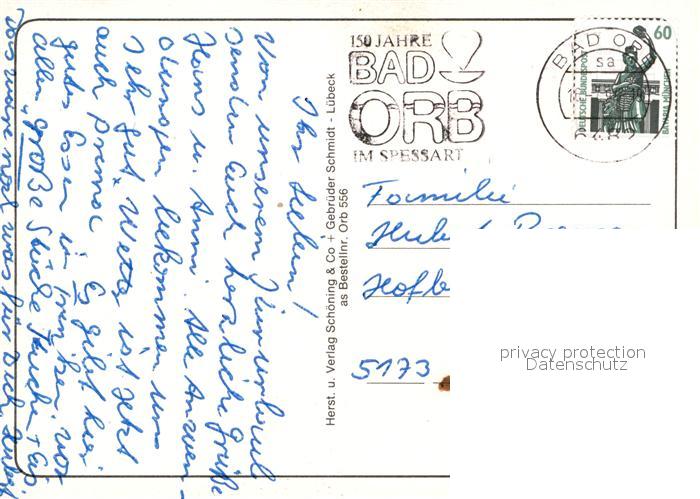 150 JAHRE
BAD
ORB
IM SPESSART
BAD ORB
sa
60
DEUTSCHE BUNDESPOST
BAVARIA MÜNCHEN
Familie
Hofb
5173
privacy protection
Datenschutz
Herst. u. Verlag Schöning & Co + Gebrüder Schmidt - Lübeck
as Bestellnr. Orb 556
Ihr Lieben!
Von unserem
senden Euch herzliche Grüße
Hans u. Anni. Alle
bekommen uns
sehr gut, Wetter ist jetzt
auch prima. Es gibt hier
gutes Essen u. Trinken, vor
allem große Stücke Kuchen + Eis